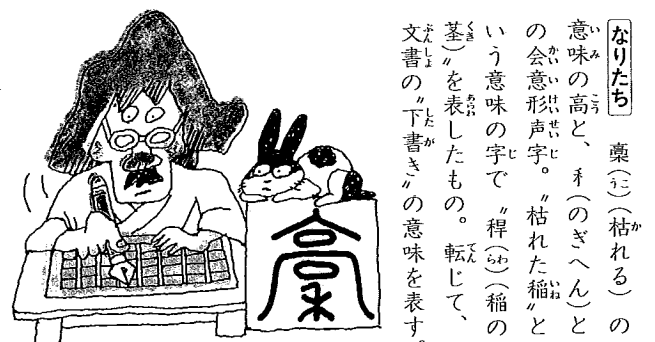 なりたち 稾(うこ)(枯れる)の
意味の高と、禾(のぎへん)と
の会意形声字。〝枯れた稲〟と
いう意味の字で〝稈(らわ)(稲の
茎)〟を表したもの。転じて、
文書の〝下書き〟の意味を表す。